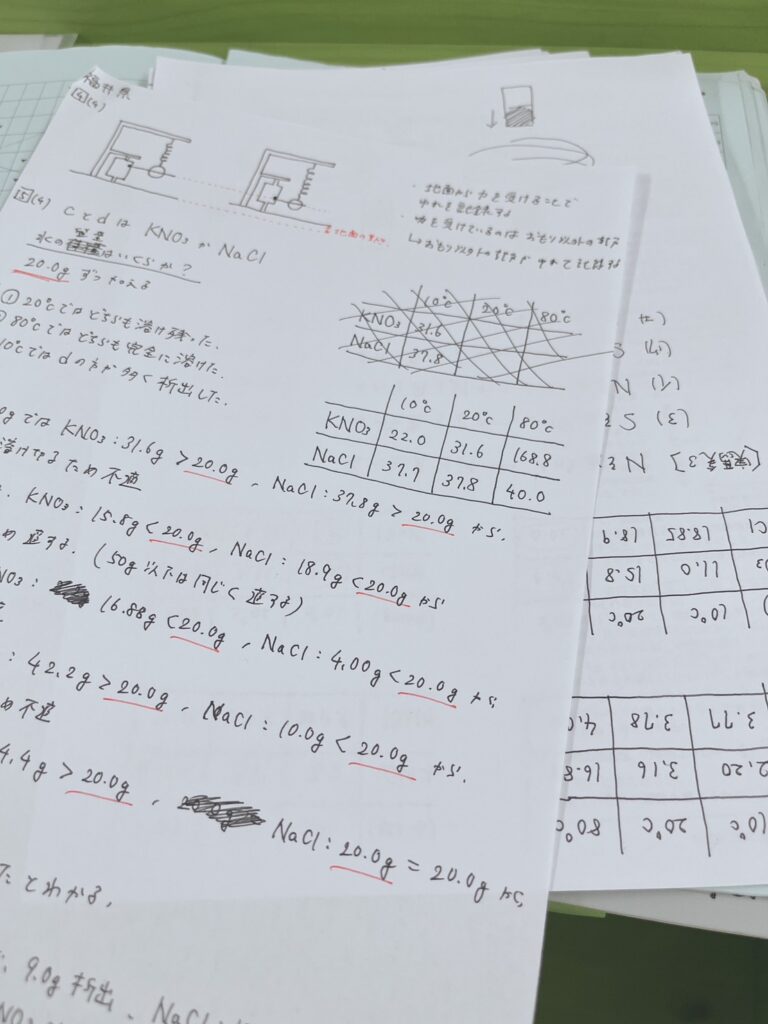 福井県
4(4)
地面の揺れ
・地面が力を受けることで
ゆれを記録する
・力を受けているのはおもり以外の部分
↳おもり以外の部分がゆれて記録する
5(4) cとdは KNO₃ か NaCl
水の はいくらか?
20.0g ずつ加える
① 20℃ではどちらも溶け残った.
80℃ではどちらも完全に溶けた.
10℃ではdの方が多く析出した.
10℃ 20℃ 80℃
KNO₃ 31.6
NaCl 37.8
10℃ 20℃ 80℃
KNO₃ 22.0 31.6 168.8
NaCl 37.7 37.8 40.0
0g では KNO₃:31.6g > 20.0g , NaCl:37.8g > 20.0g から,
溶けきるため不適
KNO₃:15.8g < 20.0g , NaCl:18.9g < 20.0g から
め適する. (50g以下は同じく適する)
NO₃: 16.88g < 20.0g , NaCl:4.00g < 20.0g から,
: 42.2g > 20.0g , NaCl:10.0g < 20.0g から.
め不適
4.4g > 20.0g , NaCl:20.0g = 20.0g から,
たとわかる.
9.0g析出 . NaCl:
NO₃
(2)
(4) S
(1) N
(3) S
[実験3] N
Cl 18.85 18.9
11.0 15.8
10℃ 20℃
3.77 3.78 4.0
2.20 3.16 16.8
10℃ 20℃ 80℃